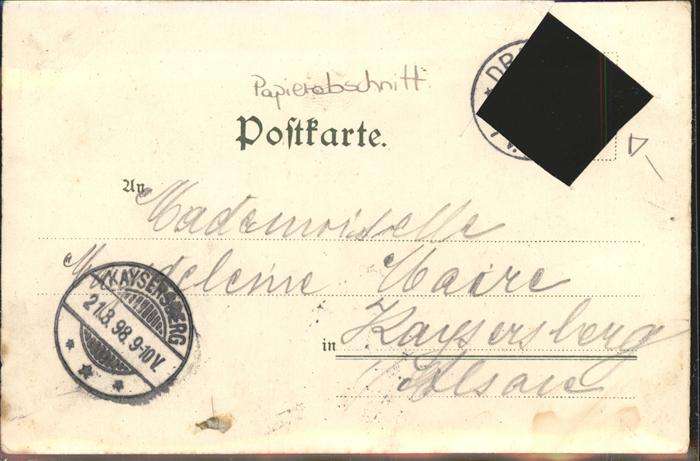 Papierabschnitt
DR
Postkarte.
An
Mademoiselle
Madeleine Maire
KAYSERSBERG
21.3.98.9-10V.
in Kaysersberg
Alsace